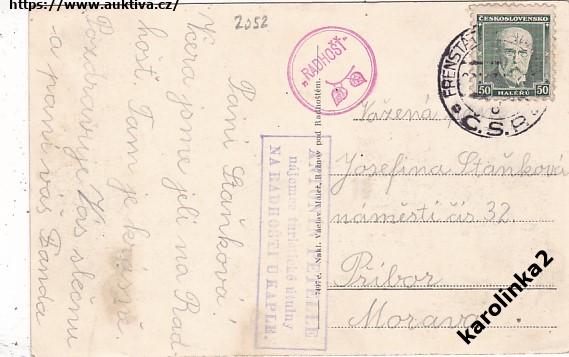 https://www.auktiva.cz/
2052
Paní Staňková!
Včera jsme jeli na Rad-
hošť. Tam je krásně.
Pozdravuje Vás slečnu
a paní váš Fanda
„RADHOŠŤ"
nájemce turistické útulny
NA RADHOŠTI U KAPLE.
7407 c. Nakl. Václav Maleř, Rožnov pod Radhoštěm.
ČESKOSLOVENSKO
50 HALÉŘŮ 50
FRENŠTÁ
Č.S.P.
Vážená
Josefina Staňková
náměstí čís 32
Příbor
Morava
karolinka2